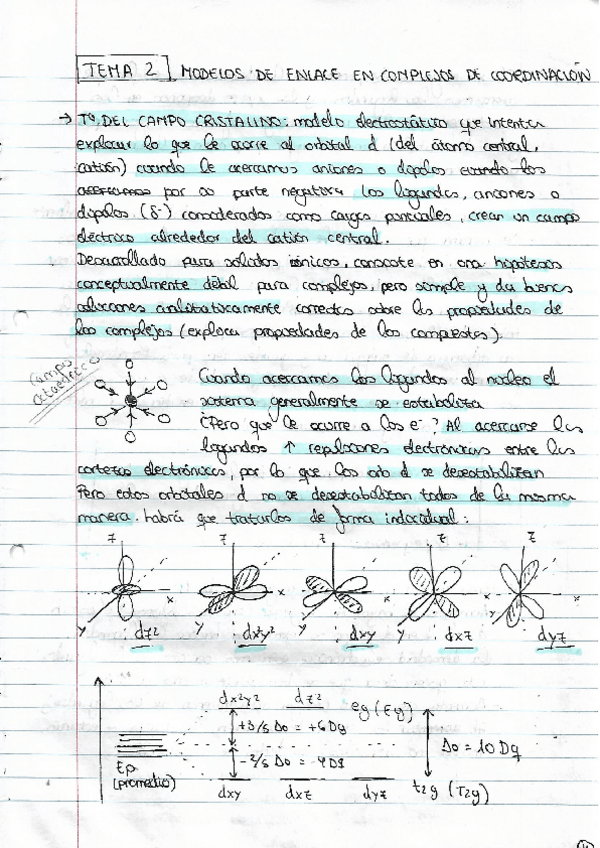 TEMA 2 MODELOS DE ENLACE EN COMPLEJOS DE COORDINACIÓN
→ Tª DEL CAMPO CRISTALINO: modelo electrostático que intenta
explicar lo que le ocurre al orbital d (del átomo central,
catión) cuando le acercamos aniones o dipolos cuando los
acercamos por su parte negativa. Los ligandos, aniones o
dipolos (δ-) considerados como cargas puntuales, crean un campo
eléctrico alrededor del catión central.
Desarrollado para sólidos iónicos, consiste en una hipótesis
conceptualmente débil para complejos, pero simple y da buenas
soluciones cualitativamente correctas sobre las propiedades de
los complejos (explica propiedades de los compuestos).
Campo
octaédrico
Cuando acercamos los ligandos al núcleo el
sistema generalmente se estabiliza
¿Pero que le ocurre a los e-? Al acercarse los
ligandos ↑ repulsiones electrónicas entre las
cortezas electrónicas, por lo que los orb d se desestabilizan
Pero estos orbitales d no se desestabilizan todos de la misma
manera. habrá que tratarlos de forma individual:
z z z z z
x x x x
y y y y y
dz² dx²y² dxy dxz dyz
dx²y² dz² eg (Eg)
+3/5 Δo = +6 Dq
Δo = 10 Dq
-2/5 Δo = -4 Dq
Ep
(promedio)
dxy dxz dyz t2g (T2g)